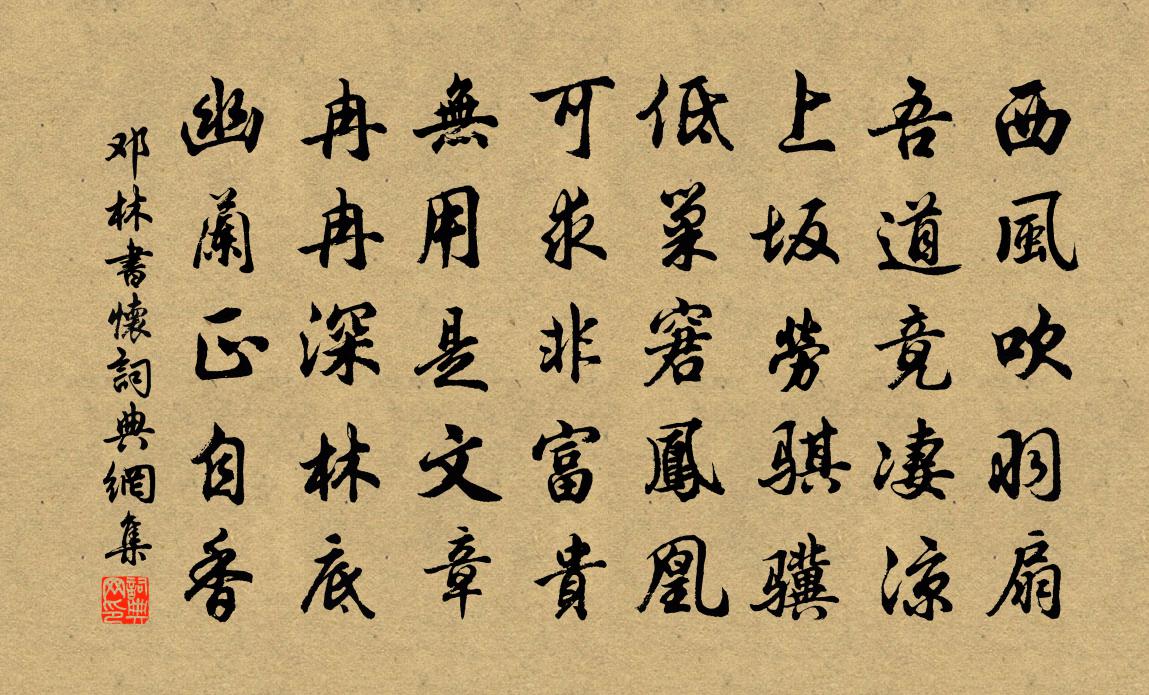 西風吹羽扇
吾道竟凄涼
上坂勞骐骥
低巢窘鳳凰
可求非富貴
無用是文章
冉冉深林底
幽蘭正自香
邓林書懷詞典網集
詞典网印